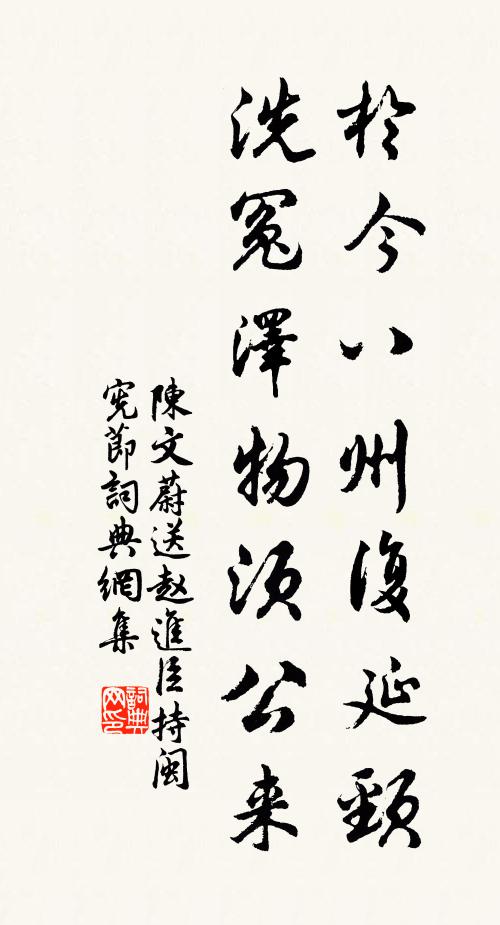 於今八州復延頸
洗冤澤物須公来
陳文蔚送赵進臣持閩
宪節詞典網集
詞典网印